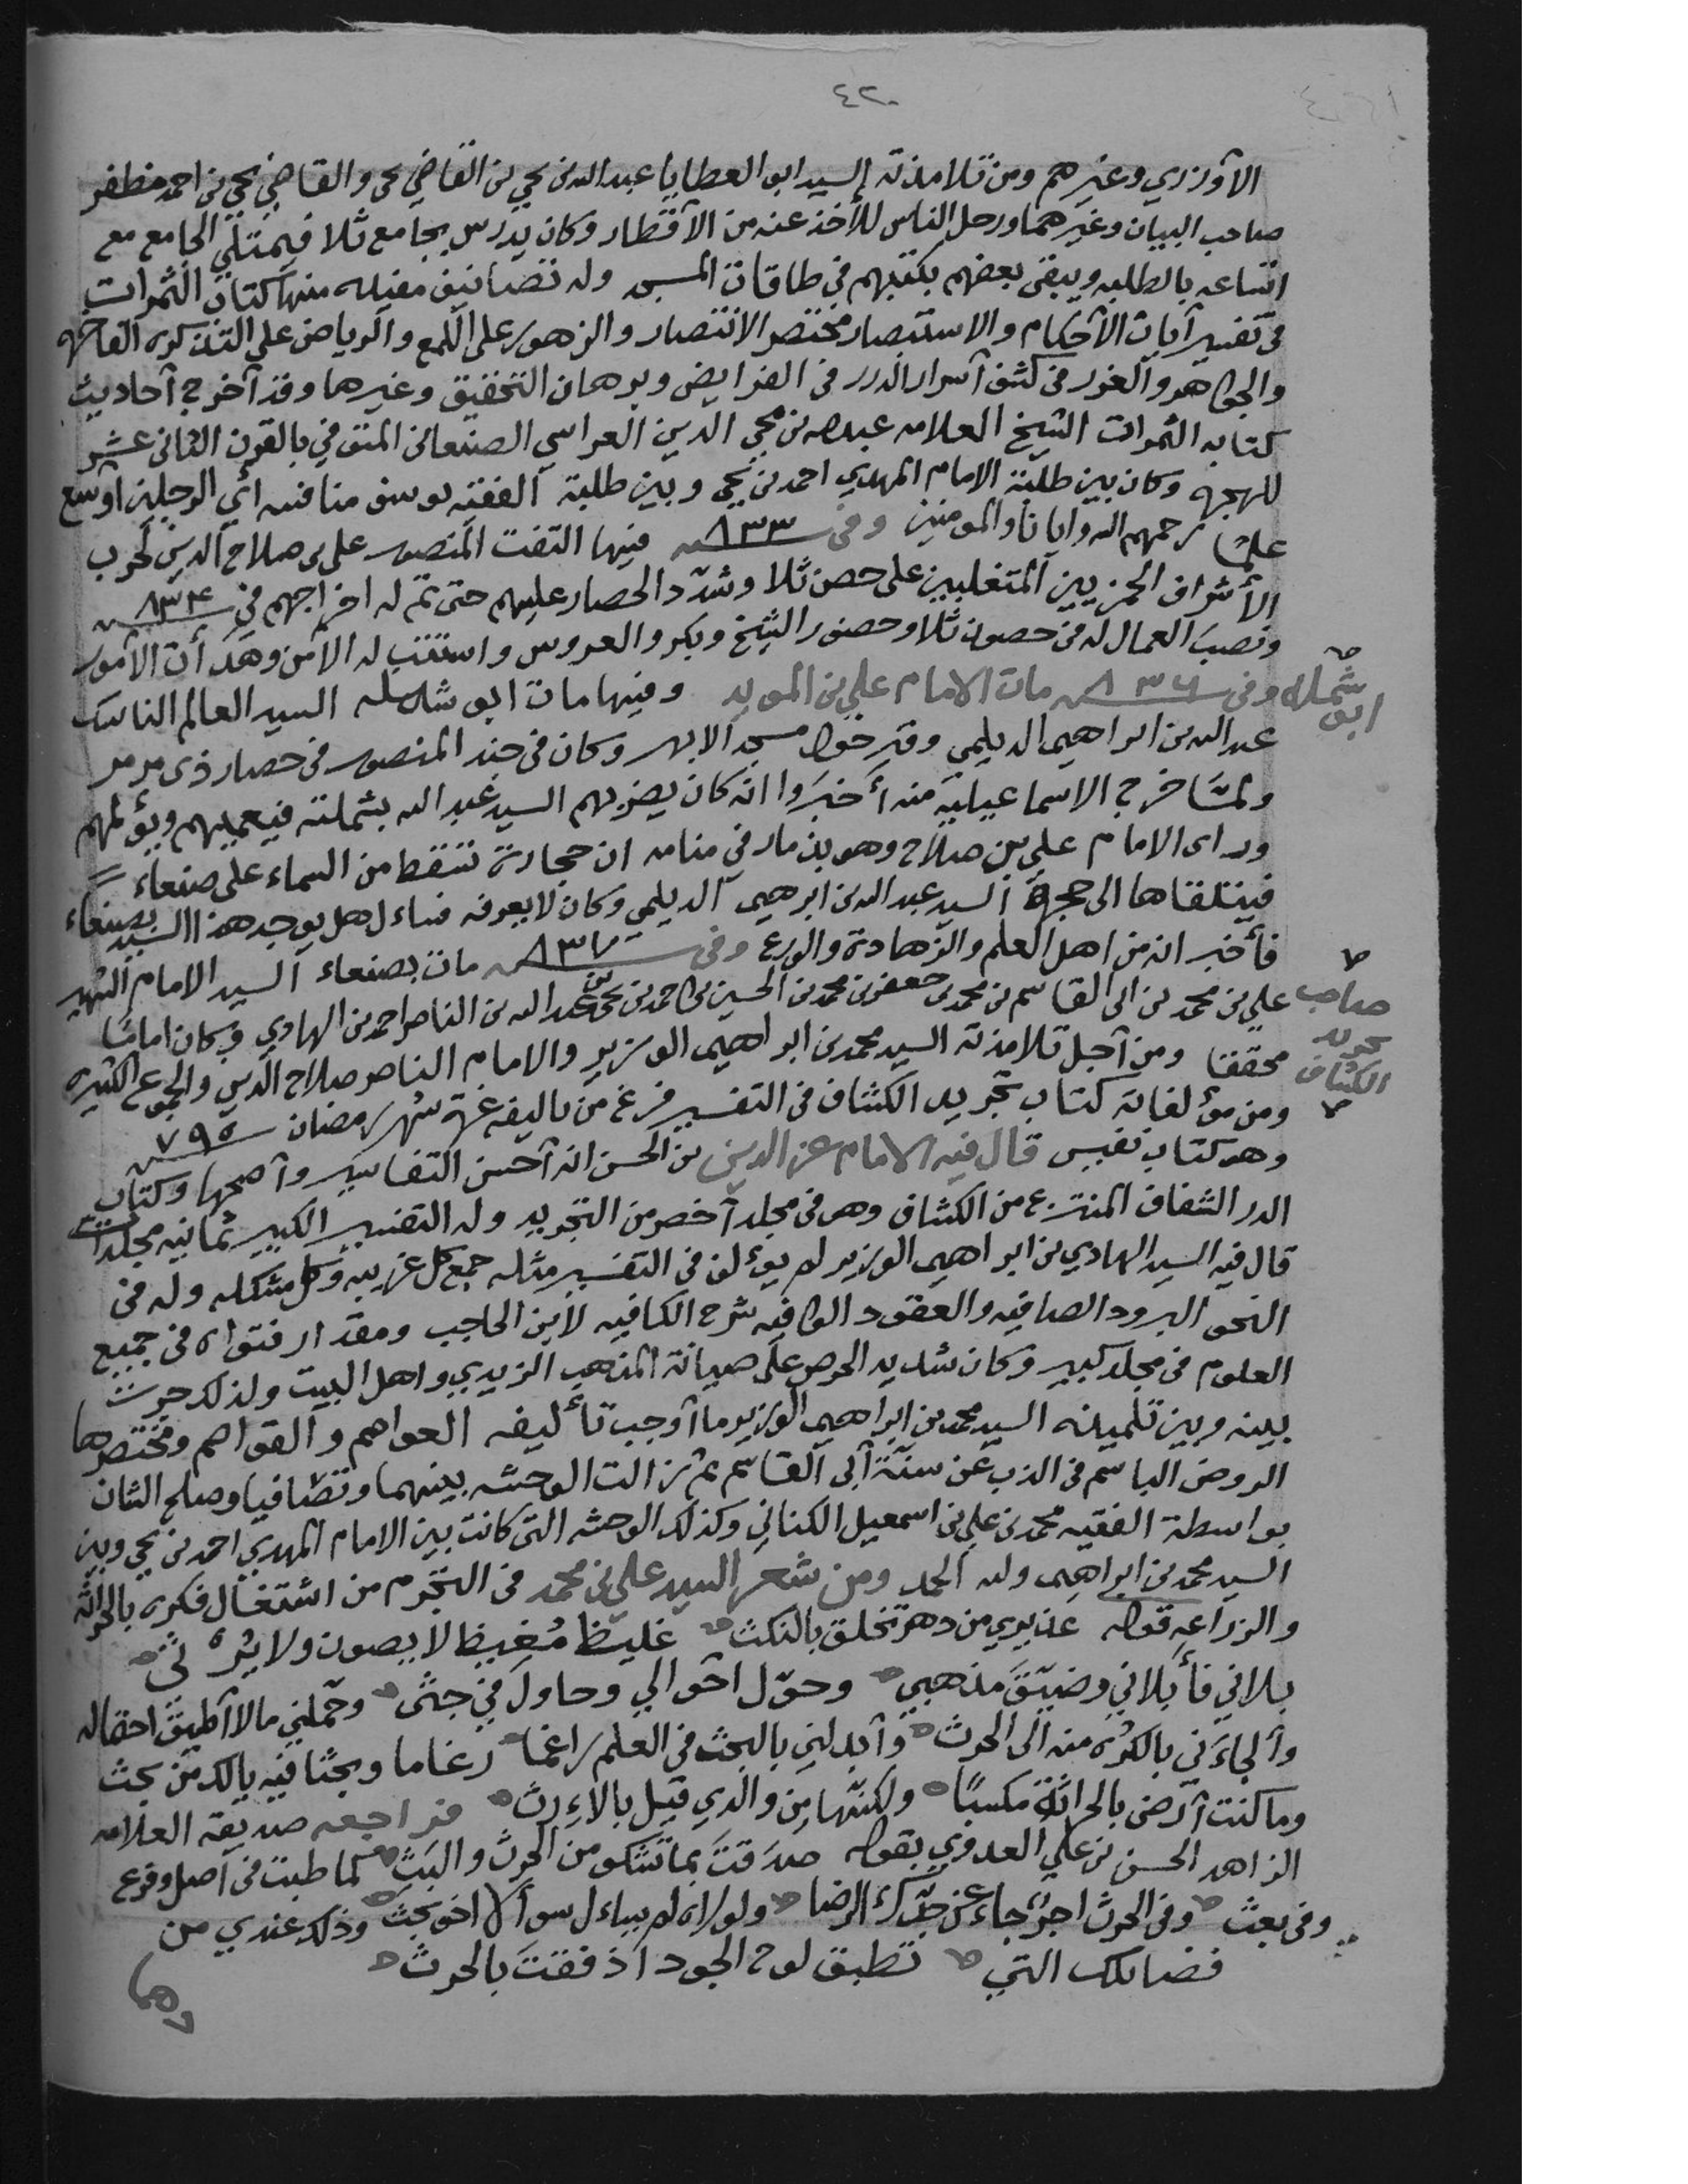 ٤٢٠
الأوزري وغيرهم ومن تلامذته السيد ابو العطايا عبدالله بن يحي بن القاضي يحي والقاضي يحي بن احمد مظفر
صاحب البيان وغيرهما ورحل الناس للأخذ عنه من الأقطار وكان يدرس بجامع ثلا فيمتلي الجامع مع
اتساعه بالطلبه ويبقى بعضهم بكتبهم في طاقات المسجد وله تصانيف مفيده منها كتاب الثمرات
في تفسير آيات الأحكام والاستبصار مختصر الانتصار والزهور على اللمع والرياض على التذكره الفاخره
والجواهر والغرر في كشف أسرار الدرر في الفرايض وبرهان التحقيق وغيرها وقد أخرج أحاديث
كتابه الثمرات الشيخ العلامه عبدالله بن محي الدين العراسي الصنعاني المتوفي بالقرن الثاني عشر
للهجره وكان بين طلبة الامام المهدي احمد بن يحي وبين طلبة الفقيه يوسف منافسه أي الرجلين أوسع
علمًا رحمهم الله وايانا والمومنين وفي سنة ٨٣٣ فيها التفت المنصور علي بن صلاح الدين لحرب
الأشراف الحمزيين المتغلبين على حصن ثلا وشدّد الحصار عليهم حتى تم له اخراجهم في سنة ٨٣٤
ونصبَ العمال له في حصون ثلا وحضور الشيخ وبكر والعروس واستتب له الأمن وهدأت الأمور
ابو شمله
وفي سنة ٨٣٦ مات الامام علي بن المويد وفيها مات ابو شمله السيد العالم الناسك
عبدالله بن ابراهيم الديلمي وقبر حول مسجد الابهر وكان في جند المنصور في حصار ذي مرمر
ولمّا خرج الاسماعيليّه منه أخبَروا انه كان يضربهم السيد عبدالله بشملته فيعميهم ويؤلمهم
وراى الامام علي بن صلاح وهو بذمار في منامه ان حجارة تسقط من السماء على صنعاء
فيتلقاها الى حجرة السيد عبدالله بن ابرهيم الديلمي وكان لا يعرفه فساءل هل يوجد هذا السيد بصنعاء
فأخبر انه من اهل العلم والزهادة والورع وفي سنة ٨٣٧ مات بصنعاء السيد الامام الشهير
صاحب تجريد الكشاف
علي بن محمد بن ابي القاسم بن محمد بن جعفر بن محمد بن الحسين بن احمد بن يحي بن عبدالله بن الناصر احمد بن الهادي وكان امامًا
محققا ومن أجل تلامذته السيد محمد بن ابراهيم الوزير والامام الناصر صلاح الدين والجموع الكثيره
ومن مؤلفاته كتاب تجريد الكشاف في التفسير فرغ من تاليفه غرة شهر رمضان سنة ٧٩٥
وهو كتاب نفيس قال فيه الامام عز الدين بن الحسن انه أحسن التفاسير وأصحها وكتاب
الدر الشفاف المنتزع من الكشاف وهو في مجلد أخصر من التجريد وله التفسير الكبير ثمانيه مجلدات
قال فيه السيد الهادي بن ابراهيم الوزير لم يؤلف في التفسير مثله جمع كل غريبه وكل مشكله وله في
النحو البرود الصافيه والعقود الوافيه شرح الكافيه لابن الحاجب ومقدار فتواه في جميع
العلوم في مجلد كبير وكان شديد الحرص على صيانة المذهب الزيدي واهل البيت ولذلك جرت
بينه وبين تلميذه السيد محمد بن ابراهيم الوزير ما أوجب تأليفه العواصم والقواصم ومختصرها
الروض الباسم في الذب عن سنّة أبي القاسم ثم زالت الوحشه بينهما وتصافيا وصلح الشان
بواسطة الفقيه محمد بن علي بن اسمعيل الكناني وكذلك الوحشه التي كانت بين الامام المهدي احمد بن يحي وبين
السيد محمد بن ابراهيم ولله الحمد ومن شعر السيد علي بن محمد في التجرم من اشتغال فكره بالحراثه
والزراعه قوله عذيري من دهر تخلق بالنكث غليظ مُغيظ لا يصون ولا يرثي
بلاني فأبلاني وضيّقَ مذهبي وحوّل احوالي وحاول في جثى وحمّلني مالا أطيقُ احتماله
وألجاءَني بالكرْه منه الى الحرث وأبدلني بالبحث في العلم راغما رغاما وبحثا فيه يالك من بحث
وما كنت أرضى بالحراثة مكسبًا ولكنّها من والدي قيل بالإرث فراجعه صديقه العلامه
الزاهد الحسن بن علي العدوي بقوله صدَقتَ بما تشكو من الحرث والبَث كما طبت في أصل وفرع
وفي بعث وفي الحرث اجرٌ جاء عن جدّك الرضا ولولاه لم يساءل سوآلا اخو بحث وذلك عندي من
فضائلك التي تطبق لوح الجود اذ فقتَ بالحرث
وهما